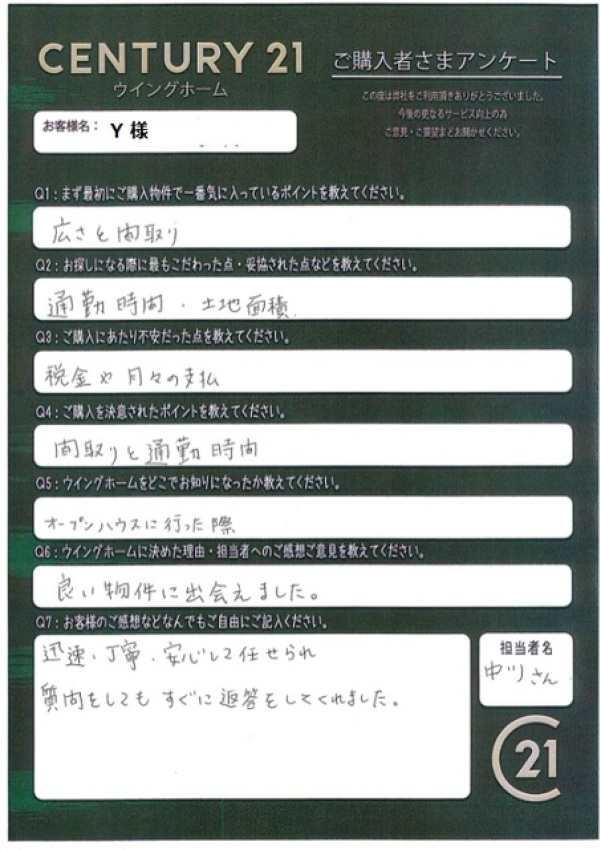 CENTURY 21
ウイングホーム
ご購入者さまアンケート
この度は弊社をご利用頂きありがとうございました。
今後の更なるサービス向上の為
ご意見・ご要望をお聞かせください。
お客様名： Y様
Q1：まず最初にご購入物件で一番気に入っているポイントを教えてください。
広さと間取り
Q2：お探しになる際に最もこだわった点・妥協された点などを教えてください。
通勤時間・土地面積
Q3：ご購入にあたり不安だった点を教えてください。
税金や月々の支払
Q4：ご購入を決意されたポイントを教えてください。
間取りと通勤時間
Q5：ウイングホームをどこでお知りになったか教えてください。
オープンハウスに行った際
Q6：ウイングホームに決めた理由・担当者へのご感想ご意見を教えてください。
良い物件に出会えました。
Q7：お客様のご感想などなんでもご自由にご記入ください。
迅速、丁寧、安心して任せられ
質問をしてもすぐに返答をしてくれました。
担当者名
中川さん
C21